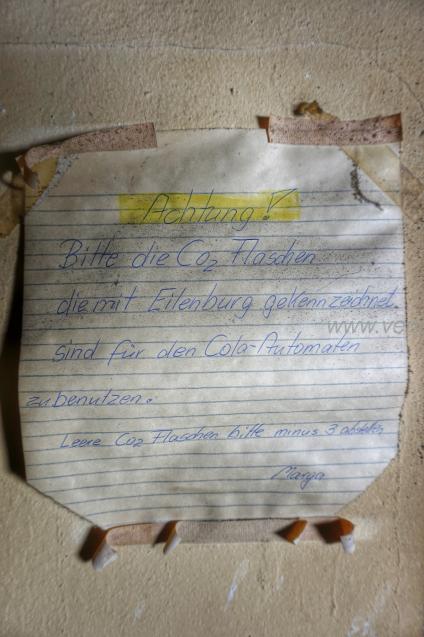 Achtung!
Bitte die Co2 Flaschen
die mit Eilenburg gekennzeichnet
sind für den Cola-Automaten
zubenutzen.
Leere Co2 Flaschen bitte minus 3 abstellen
Marga
www.ve